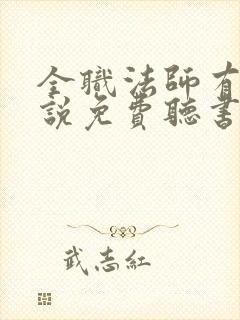 全職法師有
說免費聽書
武志紅